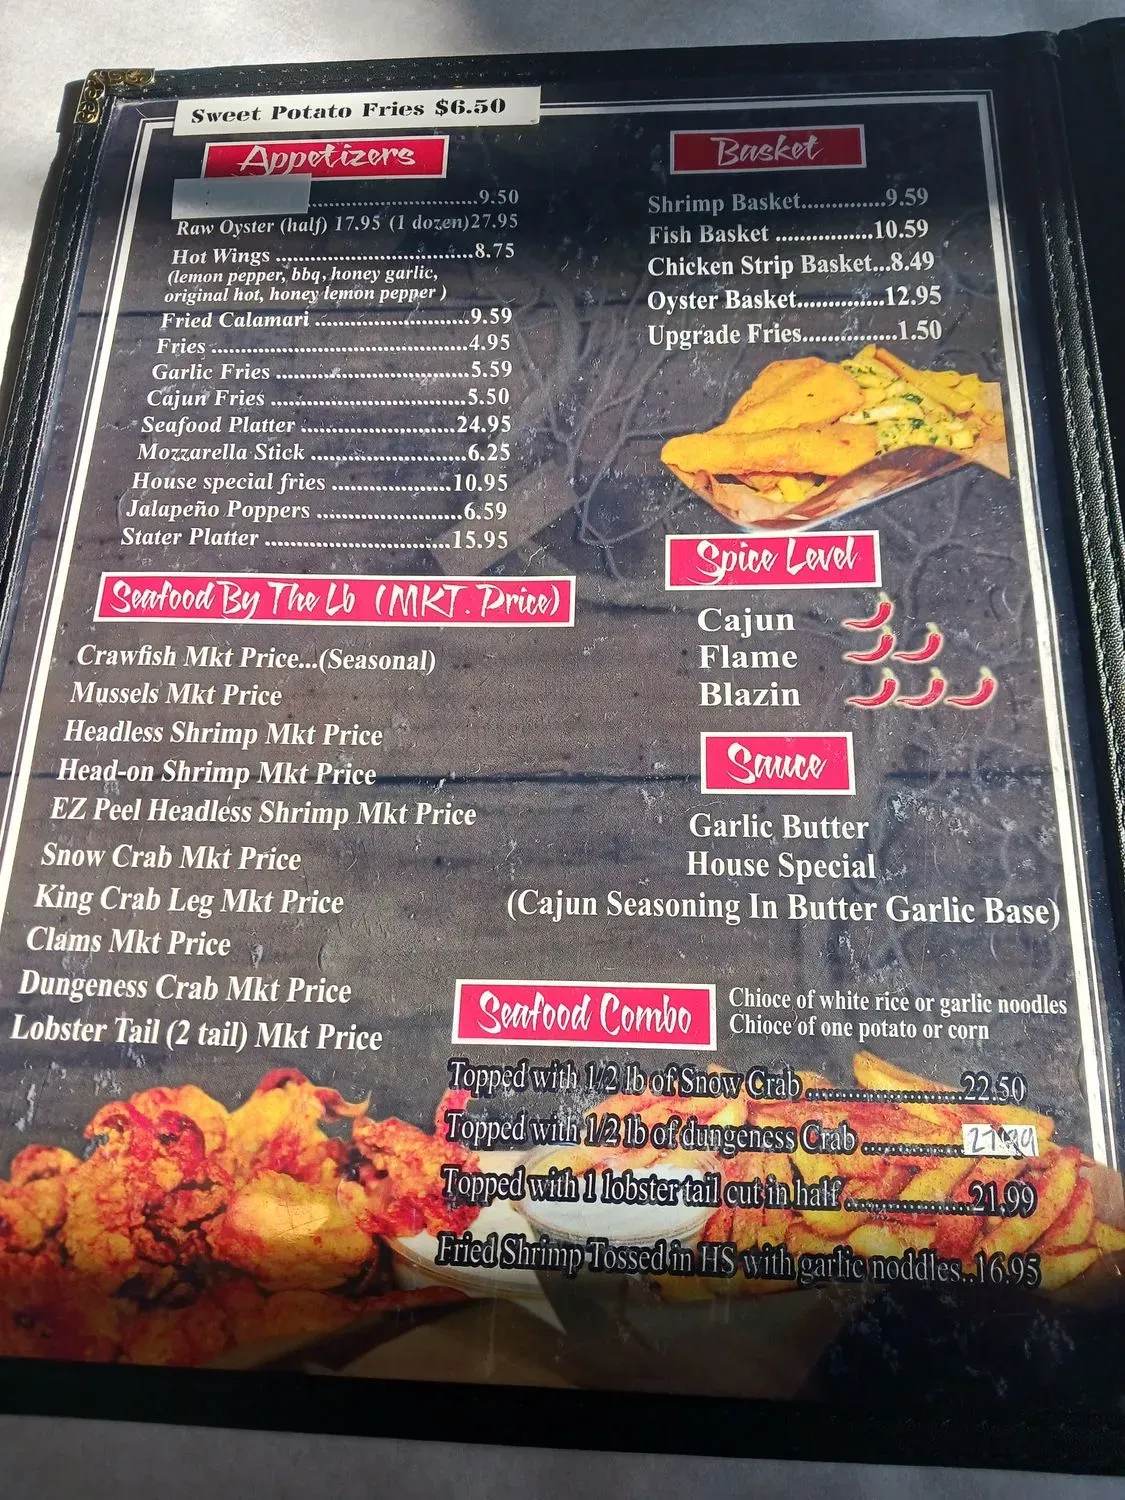 Sweet Potato Fries $6.50
Appetizers
..............................9.50
Raw Oyster (half) 17.95 (1 dozen)27.95
Hot Wings ..............................8.75
(lemon pepper, bbq, honey garlic,
original hot, honey lemon pepper )
Fried Calamari ........................9.59
Fries .......................................4.95
Garlic Fries ..............................5.59
Cajun Fries ..............................5.50
Seafood Platter ........................24.95
Mozzarella Stick ........................6.25
House special fries ....................10.95
Jalapeño Poppers ......................6.59
Stater Platter ............................15.95
Seafood By The Lb (MKT. Price)
Crawfish Mkt Price...(Seasonal)
Mussels Mkt Price
Headless Shrimp Mkt Price
Head-on Shrimp Mkt Price
EZ Peel Headless Shrimp Mkt Price
Snow Crab Mkt Price
King Crab Leg Mkt Price
Clams Mkt Price
Dungeness Crab Mkt Price
Lobster Tail (2 tail) Mkt Price
Basket
Shrimp Basket..............9.59
Fish Basket ................10.59
Chicken Strip Basket...8.49
Oyster Basket..............12.95
Upgrade Fries................1.50
Spice Level
Cajun
Flame
Blazin
Sauce
Garlic Butter
House Special
(Cajun Seasoning In Butter Garlic Base)
Seafood Combo
Chioce of white rice or garlic noodles
Chioce of one potato or corn
Topped with 1/2 lb of Snow Crab ......................22.50
Topped with 1/2 lb of dungeness Crab ..............
Topped with 1 lobster tail cut in half ..................21.99
Fried Shrimp Tossed in HS with garlic noddles..16.95